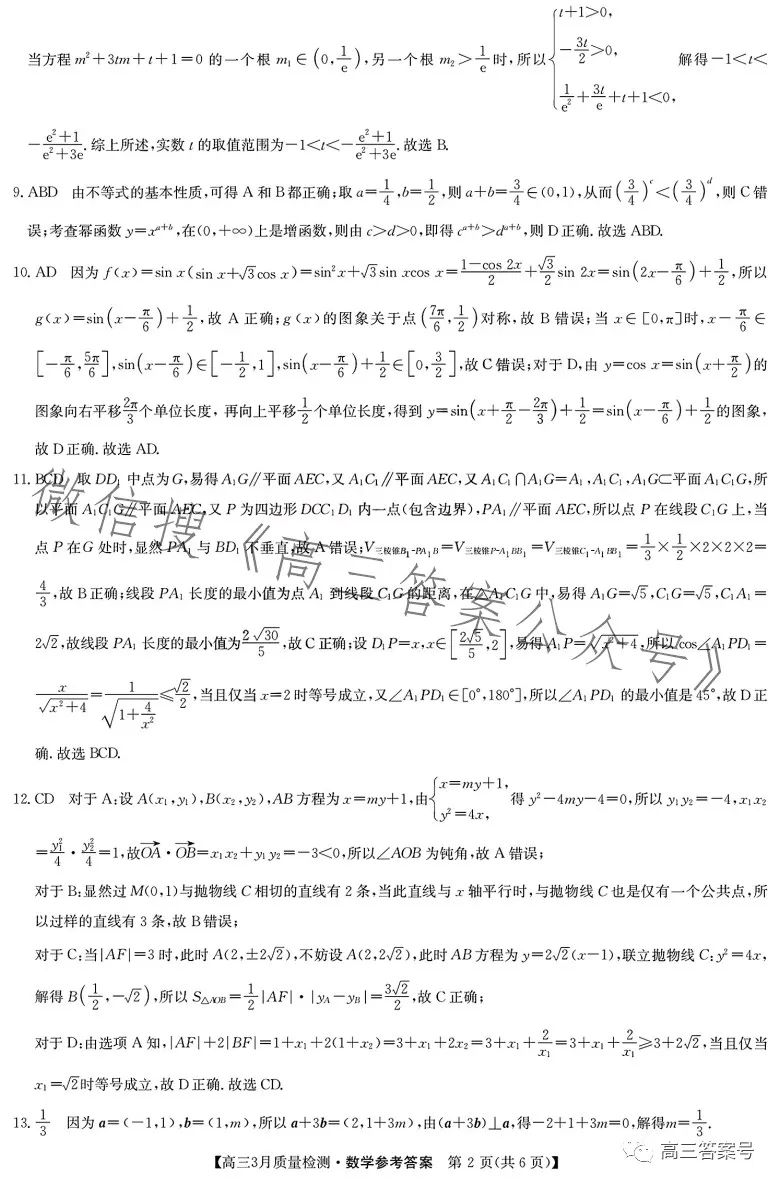 当方程 m²+3tm+t+1=0 的一个根 m₁∈(0,1/e),另一个根 m₂>1/e 时,所以{t+1>0, -3t/2>0, 1/e²+3t/e+t+1<0, 解得-1<t<
-(e²+1)/(e²+3e).综上所述,实数 t 的取值范围为-1<t<-(e²+1)/(e²+3e).故选 B.
9. ABD 由不等式的基本性质,可得 A 和 B 都正确;取 a=1/4,b=1/2,则 a+b=3/4∈(0,1),从而(3/4)^c<(3/4)^d,则 C 错
误;考查幂函数 y=x^(a+b),在(0,+∞)上是增函数,则由 c>d>0,即得 c^(a+b)>d^(a+b),则 D 正确.故选 ABD.
10. AD 因为 f(x)=sin x(sin x+√3cos x)=sin²x+√3sin xcos x=(1-cos 2x)/2+√3/2 sin 2x=sin(2x-π/6)+1/2,所以
g(x)=sin(x-π/6)+1/2,故 A 正确;g(x)的图象关于点(7π/6,1/2)对称,故 B 错误;当 x∈[0,π]时,x-π/6∈
[-π/6,5π/6],sin(x-π/6)∈[-1/2,1],sin(x-π/6)+1/2∈[0,3/2],故 C 错误;对于 D,由 y=cos x=sin(x+π/2)的
图象向右平移2π/3个单位长度,再向上平移1/2个单位长度,得到 y=sin(x+π/2-2π/3)+1/2=sin(x-π/6)+1/2的图象,
故 D 正确.故选 AD.
11. BCD 取 DD₁ 中点为 G,易得 A₁G∥平面 AEC,又 A₁C₁∥平面 AEC,又 A₁C₁∩A₁G=A₁,A₁C₁,A₁G⊂平面 A₁C₁G,所
以平面 A₁C₁G∥平面 AEC,又 P 为四边形 DCC₁D₁ 内一点(包含边界),PA₁∥平面 AEC,所以点 P 在线段 C₁G 上,当
点 P 在 G 处时,显然 PA₁ 与 BD₁ 不垂直,故 A 错误;V三棱锥B₁-PA₁B=V三棱锥P-A₁BB₁=V三棱锥C₁-A₁BB₁=1/3×1/2×2×2×2=
4/3,故 B 正确;线段 PA₁ 长度的最小值为点 A₁ 到线段 C₁G 的距离,在△A₁C₁G 中,易得 A₁G=√5,C₁G=√5,C₁A₁=
2√2,故线段 PA₁ 长度的最小值为2√30/5,故 C 正确;设 D₁P=x,x∈[2√5/5,2],易得 A₁P=√(x²+4),所以 cos∠A₁PD₁=
x/√(x²+4)=1/√(1+4/x²)≤√2/2,当且仅当 x=2 时等号成立,又∠A₁PD₁∈[0°,180°],所以∠A₁PD₁ 的最小值是 45°,故 D 正
确.故选 BCD.
12. CD 对于 A:设 A(x₁,y₁),B(x₂,y₂),AB 方程为 x=my+1,由{x=my+1, y²=4x, 得 y²-4my-4=0,所以 y₁y₂=-4,x₁x₂
=y₁²/4·y₂²/4=1,故OA→·OB→=x₁x₂+y₁y₂=-3<0,所以∠AOB 为钝角,故 A 错误;
对于 B:显然过 M(0,1)与抛物线 C 相切的直线有 2 条,当此直线与 x 轴平行时,与抛物线 C 也是仅有一个公共点,所
以过样的直线有 3 条,故 B 错误;
对于 C:当|AF|=3 时,此时 A(2,±2√2),不妨设 A(2,2√2),此时 AB 方程为 y=2√2(x-1),联立抛物线 C:y²=4x,
解得 B(1/2,-√2),所以 S△AOB=1/2|AF|·|yA-yB|=3√2/2,故 C 正确;
对于 D:由选项 A 知,|AF|+2|BF|=1+x₁+2(1+x₂)=3+x₁+2x₂=3+x₁+2/x₁=3+x₁+2/x₁≥3+2√2,当且仅当
x₁=√2时等号成立,故 D 正确.故选 CD.
13. 1/3 因为 a=(-1,1),b=(1,m),所以 a+3b=(2,1+3m),由(a+3b)⊥a,得-2+1+3m=0,解得m=1/3.
【高三3月质量检测·数学参考答案 第 2 页(共 6 页)】
微信搜《高三答案公众号》
高三答案号